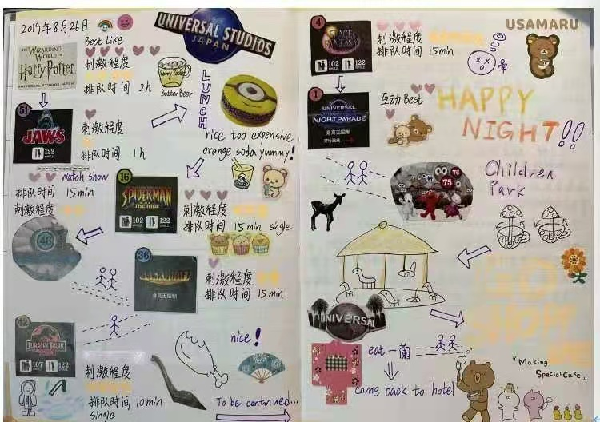 2019年8月26日
Best Like
THE WIZARDING
WORLD OF
Harry Potter
刺激程度
排队时间 2h
butter beer
UNIVERSAL STUDIOS
JAPAN
LUNCH
31
JAWS
102
122
刺激程度
排队时间 1h
nice too expensive
orange soda yummy!
Watch show
排队时间 15min
刺激程度
SPIDERMAN
102
122
刺激程度
排队时间 15min single
刺激程度
排队时间 15min
JURASSIC PARK
刺激程度
排队时间 10min
single
nice!
To be continued...
4
SPACE FANTASY
102
122
刺激程度
排队时间 15min
USAMARU
1
UNIVERSAL
互动Best
HAPPY
NIGHT!!
Children
Park
UNIVERSAL
eat 一兰
come back to hotel
"Making
Special Cake"